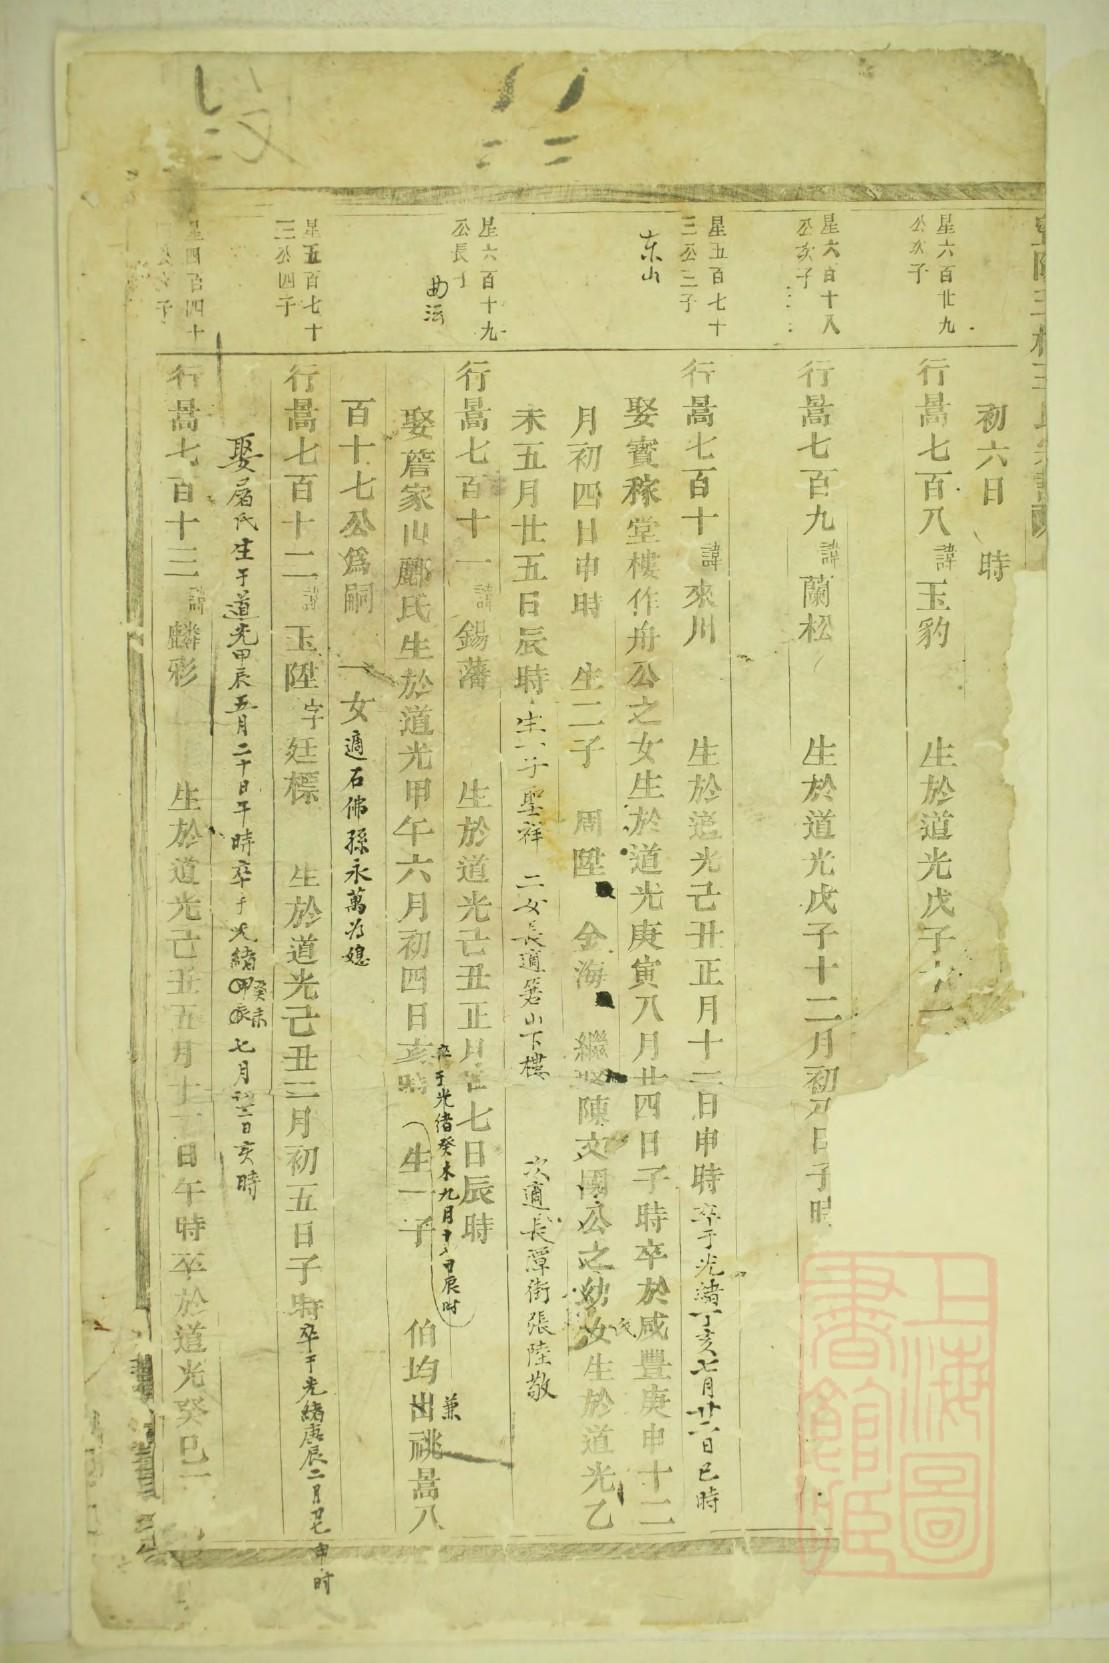 初六日　時
星六百廿九
公次子
行暠七百八諱玉豹　生於道光戊子
星六百十八
公次子
行暠七百九諱蘭松　生於道光戊子十二月初八日子時
星五百七十
三公三子
行暠七百十諱來川　生於道光己丑正月十二日申時卒于光緒丁亥七月廿二日巳時
东山
娶寶稼堂樓作舟公之女生於道光庚寅八月廿四日子時卒於咸豐庚申十二
月初四日申時　生二子　周陞　金海　繼娶陳文國公之幼女生於道光乙
未五月廿五日辰時生一子聖祥　二女長適箬山下樓　次適長潭街張陸敬
星六百十九
公長子
行暠七百十一諱錫藩　生於道光己丑正月廿七日辰時
卒于光緒癸未九月十八日辰时
娶詹家山酈氏生於道光甲午六月初四日亥時　生一子　伯均出祧暠八
兼
百十七公爲嗣　一女適石佛孫永萬为媳
星五百七十
三公四子
行暠七百十二諱玉陞字廷標　生於道光己丑二月初五日子時卒于光緒庚辰二月廿七申时
娶屠氏生于道光甲辰五月二十日午時卒于光緒癸未七月日亥時
星四百四十
行暠七百十三諱麟彩　生於道光己丑五月十日午時卒於道光癸巳
上海圖書館藏